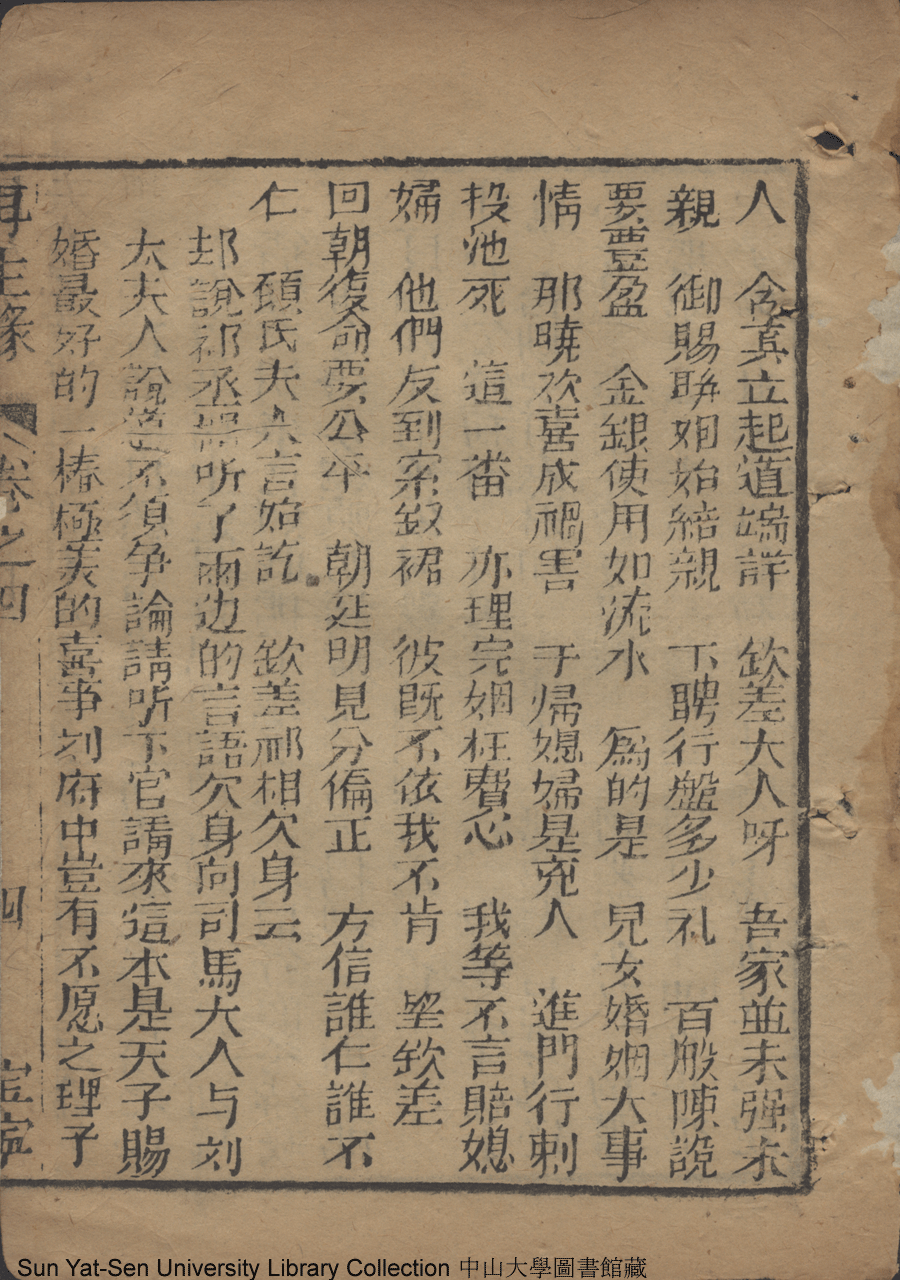 人 含真立起道端詳 欽差大人呀 吾家並未强求
親 御賜聨姻始結親 下聘行盤多少礼 百般陳說
要豊盈 金銀使用如流水 為的是 兒女婚姻大事
情 那曉欢喜成禍害 于帰媳婦是兇人 進門行刺
投池死 這一番 亦理完姻枉費心 我等不言賠媳
婦 他們反到索釵裙 彼既不依我不肯 望欽差
回朝復命要公平 朝廷明見分偏正 方信誰仁誰不
仁 頋氏夫人言始訖 欽差祁相欠身云
却說祁丞相听了兩边的言語欠身向司馬大人与刘
太夫人說道不須争論請听下官講來這本是天子賜
婚最好的一樁極美的喜事刘府中豈有不愿之理子
再生緣 卷之四 四 宝寧
Sun Yat-Sen University Library Collection 中山大學圖書館藏